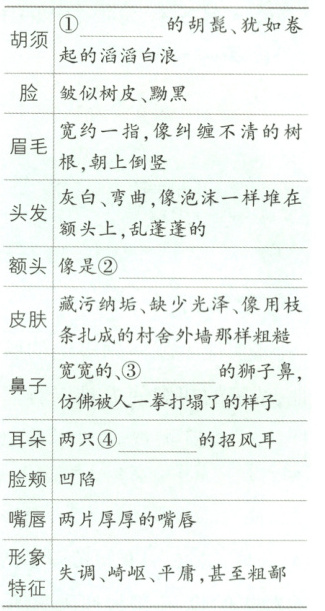 胡须 ①________的胡髭、犹如卷
起的滔滔白浪
脸 皱似树皮、黝黑
眉毛 宽约一指,像纠缠不清的树
根,朝上倒竖
头发 灰白、弯曲,像泡沫一样堆在
额头上,乱蓬蓬的
额头 像是②________
皮肤 藏污纳垢、缺少光泽、像用枝
条扎成的村舍外墙那样粗糙
鼻子 宽宽的、③________的狮子鼻,
仿佛被人一拳打塌了的样子
耳朵 两只④________的招风耳
脸颊 凹陷
嘴唇 两片厚厚的嘴唇
形象
特征 失调、崎岖、平庸,甚至粗鄙